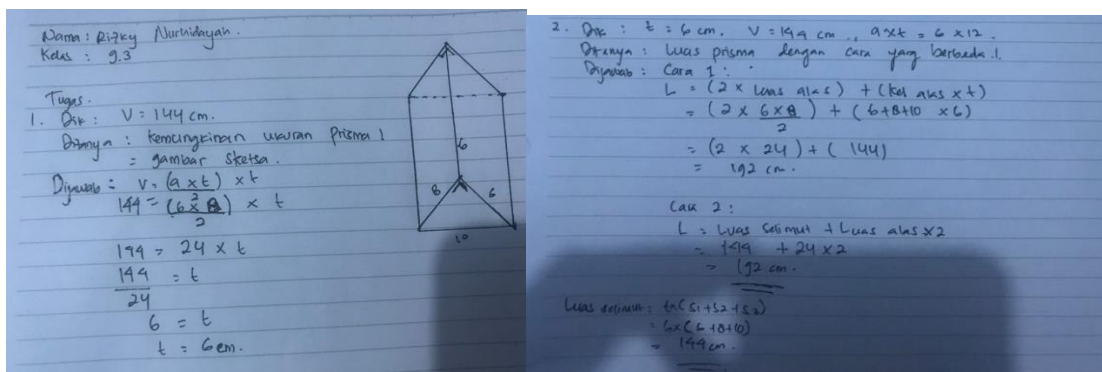 Nama : Rizky Nurhidayah.
Kelas : 9.3
Tugas.
1. Dik : V = 144 cm.
Ditanya : Kemungkinan ukuran Prisma !
= gambar sketsa.
Dijawab = V = (a x t) x t
2
144 = (6 x 8) x t
2
144 = 24 x t
144 = t
24
6 = t
t = 6 cm.
6
8 6
10
2. Dik : t = 6 cm. V = 144 cm., axt = 6 x 12.
Ditanya : Luas prisma dengan cara yang berbeda.!.
Dijawab : Cara 1 :
L = (2 x luas alas) + (kel alas x t)
= (2 x 6 x 8) + (6+8+10 x 6)
2
= (2 x 24) + ( 144)
= 192 cm.
Cara 2 :
L = Luas Selimut + Luas alas x 2
= 144 + 24 x 2
= 192 cm.
Luas selimut : tx(S1+S2+S3)
= 6x(6+8+10)
= 144 cm.